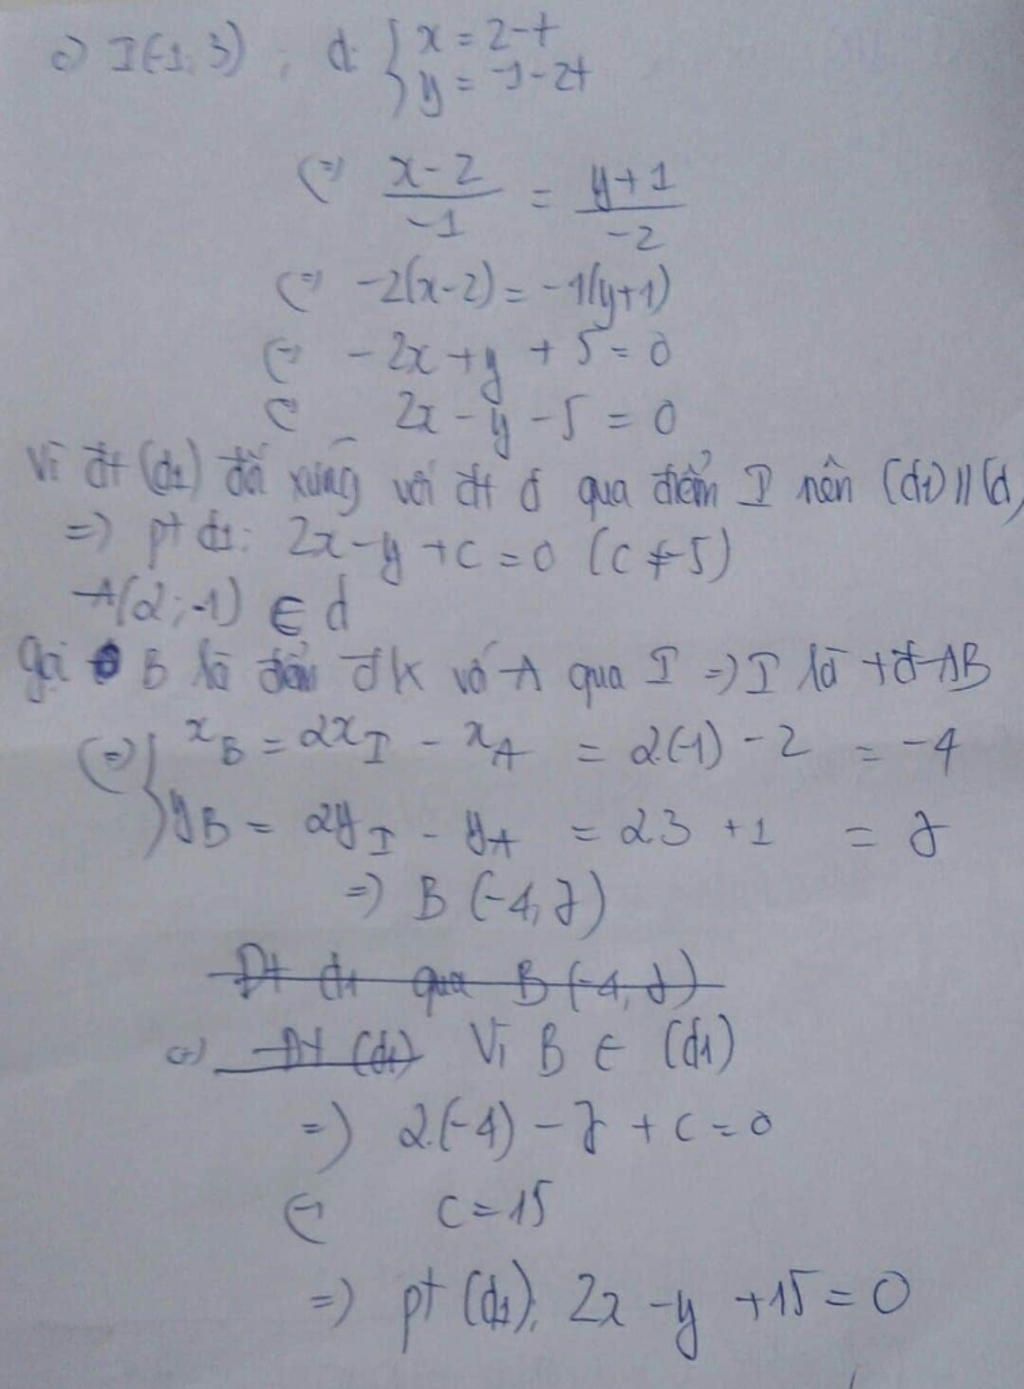 c) I(-1; 3) ; d: { x = 2-t
y = -1-2t
(=) x-2 / -1 = y+1 / -2
(=) -2(x-2) = -1(y+1)
(=) -2x + y + 5 = 0
(=) 2x - y - 5 = 0
Vì đt (d1) đối xứng với đt d qua điểm I nên (d1) // (d)
=) pt d1: 2x - y + c = 0 (c ≠ -5)
A(2; -1) ∈ d
gọi B là điểm đx với A qua I =) I là tđ AB
(=) { xB = 2xI - xA = 2.(-1) - 2 = -4
yB = 2yI - yA = 2.3 + 1 = 7
=) B (-4, 7)
Đt d1 qua B (-4, 7)
=) Đt (d1) Vì B ∈ (d1)
=) 2.(-4) - 7 + c = 0
(=) c = 15
=) pt (d1): 2x - y + 15 = 0